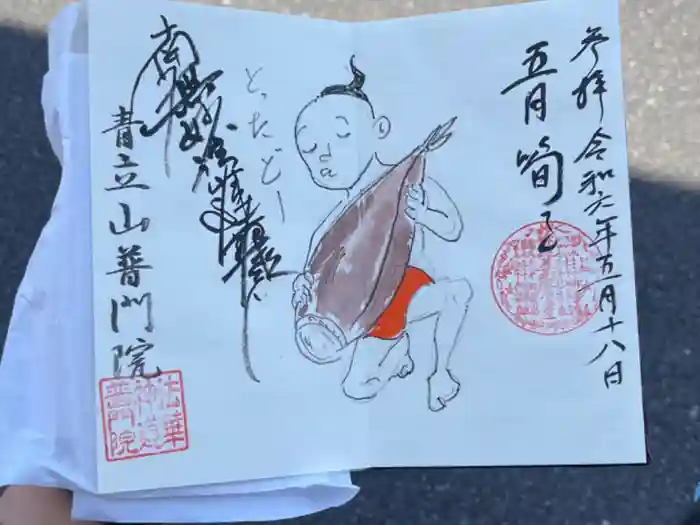 参拝 令和六年五月十八日
五月 筍
とったどー
南無妙法蓮華経
青立山普門院
法華
神道
普門院